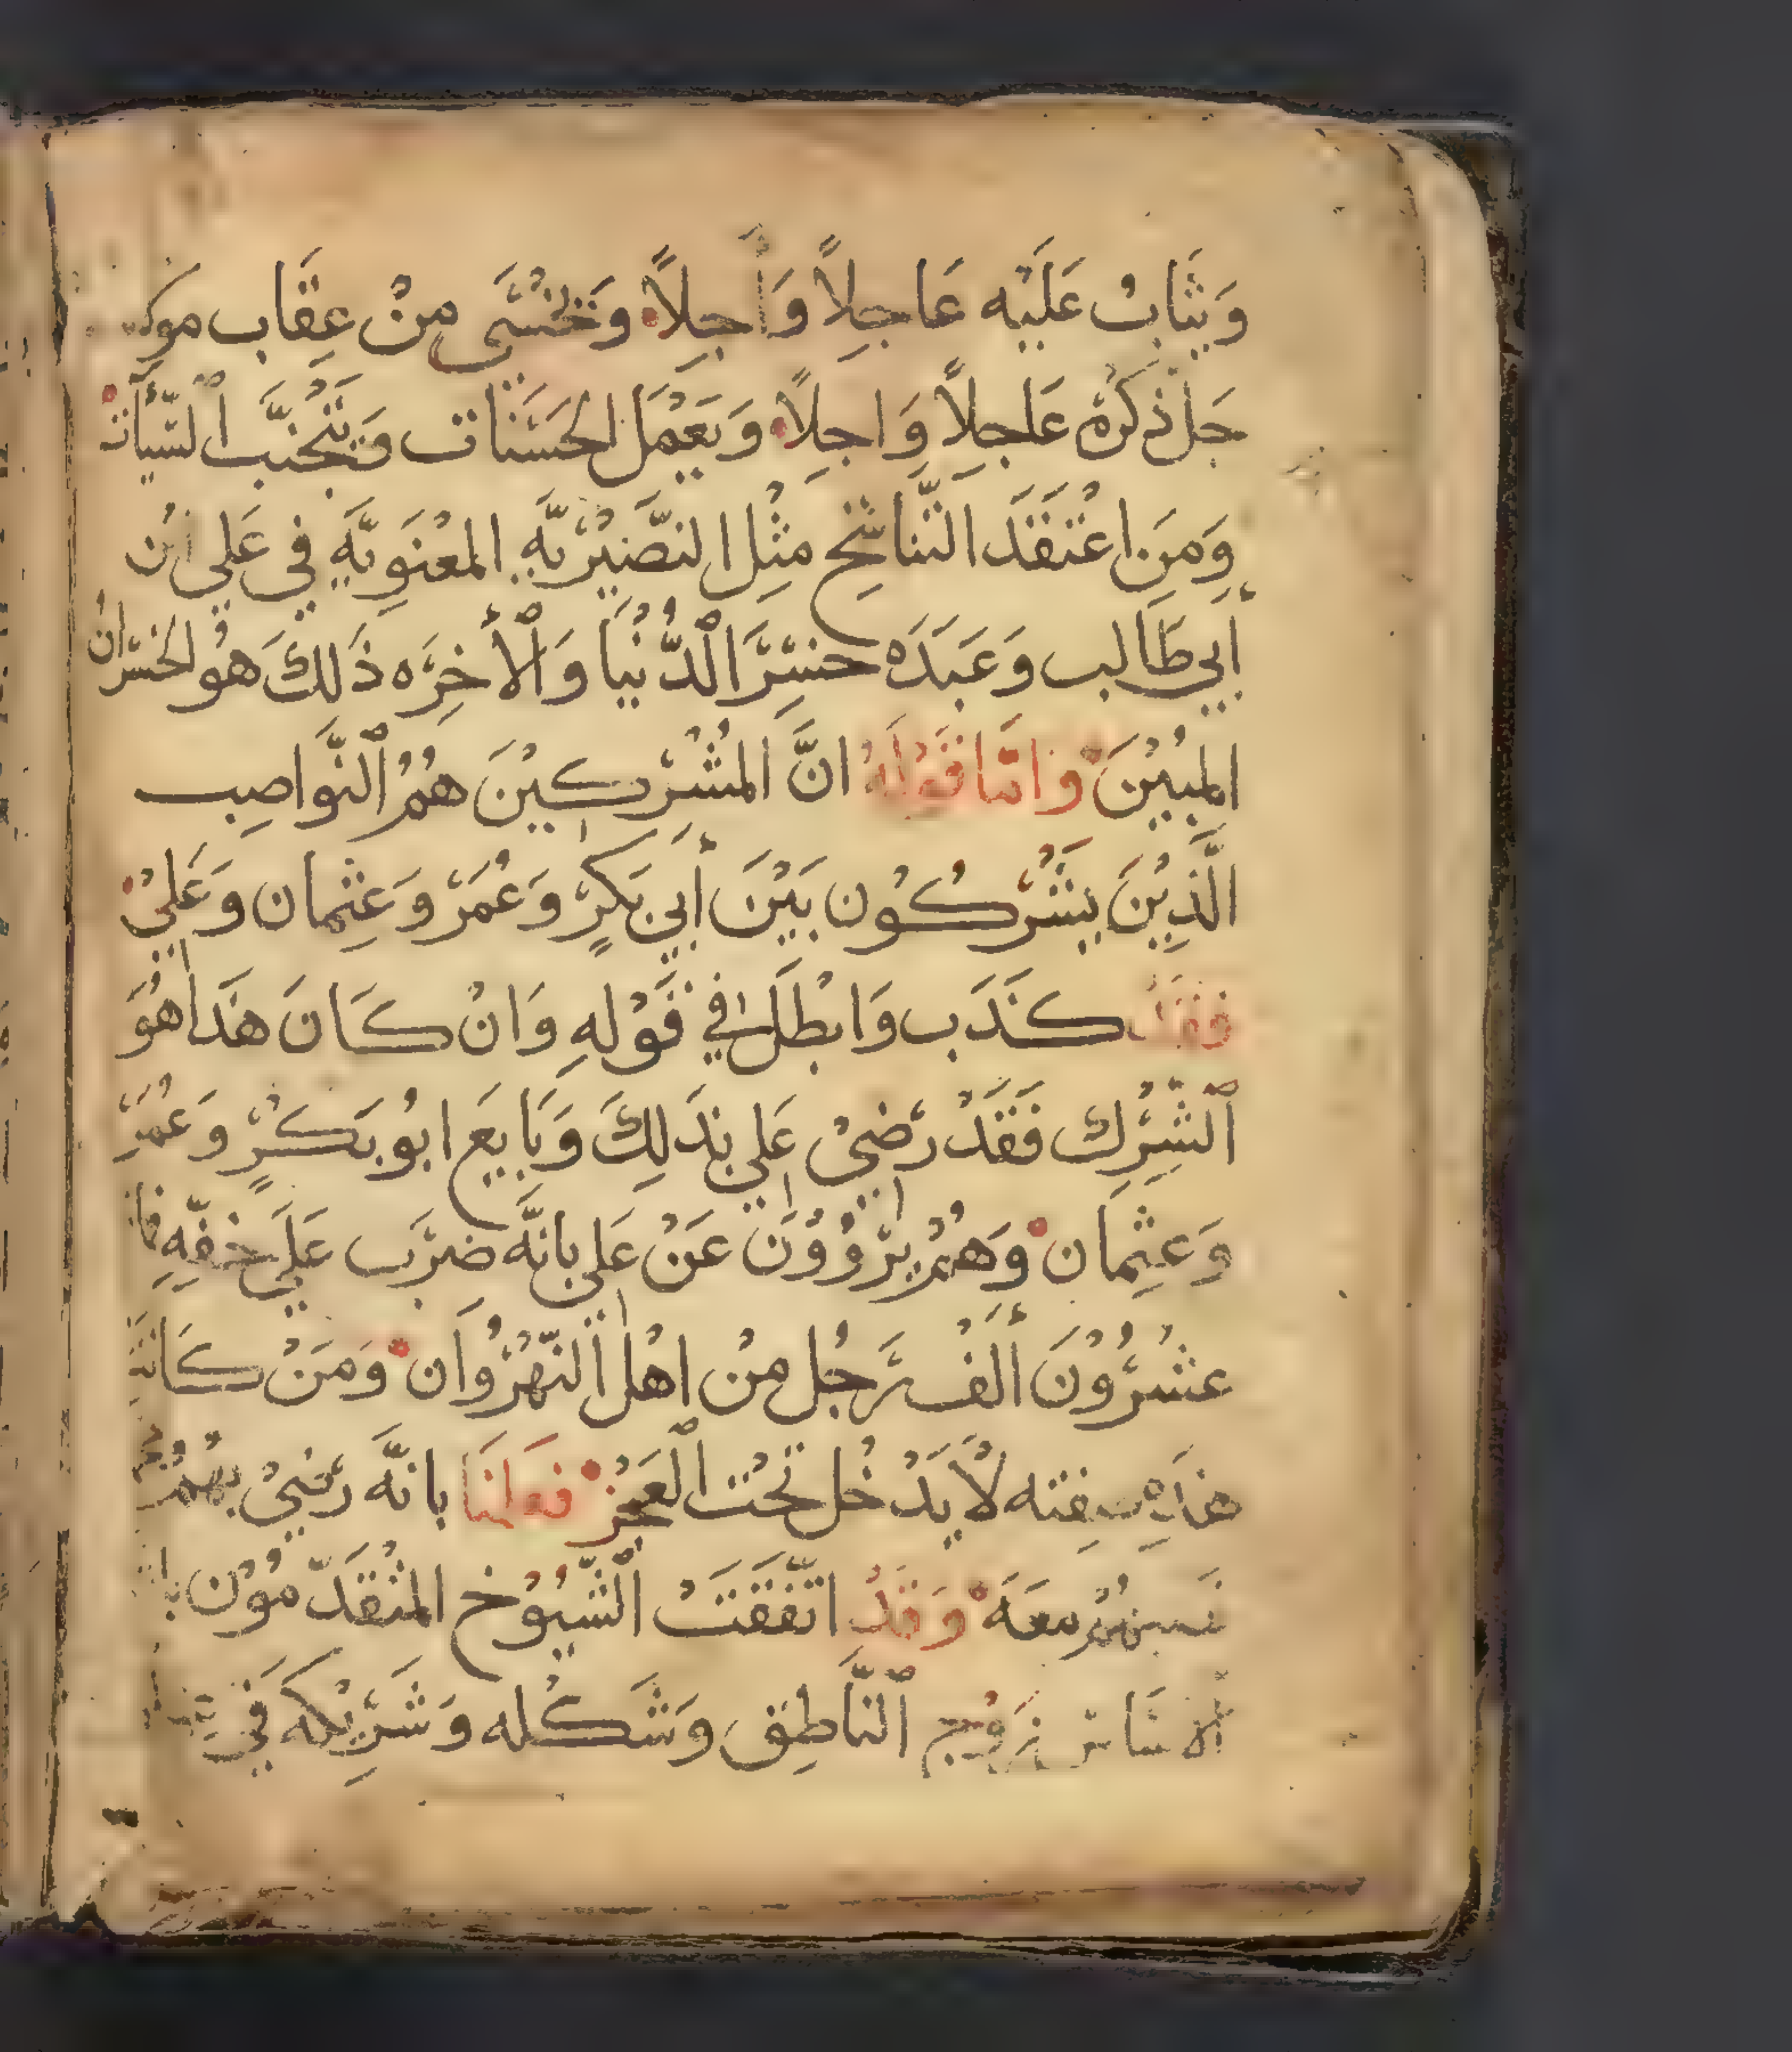 وَيثَابُ عَلَيْه عَاجِلاً وَأجِلاً وَيَخْشَى مِنْ عِقَاب
جَل ذكرُه عَاجِلاً وَاجِلاً وَيَعْمَل الحَسَنَات وَيَتَجْنَّب السّيأتْ
وَمَن اعْتَقَدَ التّناسُخ مثْل النصَّيْريَّه المعْنَويَّه في عَلي ابْن
أَبي طَالب وَعَبَدَه خسِرَ الدُّنْيَا وَالأخِرَه ذَلكَ هوُ الخسْرانُ
المبُيْنَ وَامّا قَوْلَهُ انَّ المُشْركيْنَ هُمُ النَّواصِب
الَّذيْنَ يشْركُوُن بَيْنَ أَبي بَكرٍ وَعُمَرْ وَعثمان وَعَليْ
فقَدْ كذَب وَابْطَل في قَوْلهِ وَانْ كَانَ هَذا هُوَ
الشرْك فَقَدْ رَضيْ عَلي بذَلكَ وَبَايعَ ابُو بَكرٍ وَعُمَرْ
وَعثمَان وَهُمْ يرْوُوْنَ عَنْ عَلي بانَّه ضرَب عَلَي خفّهِ
عشُرْوُنَ أَلْف رَجُل منْ اهْل النّهْرُوَان وَمَنْ كَانَتْ
هَذِه صفته لاَ يَدْخُل تحْت العَجْز فعَلمْنَا بانَّه رَضيْ بهُمْ
معَهَ وَقَدْ اتّفَقَتْ الشّيُوُخ المتْقَدّموُن
النَّاطِق وَشَكْله وَشَرْيكه في